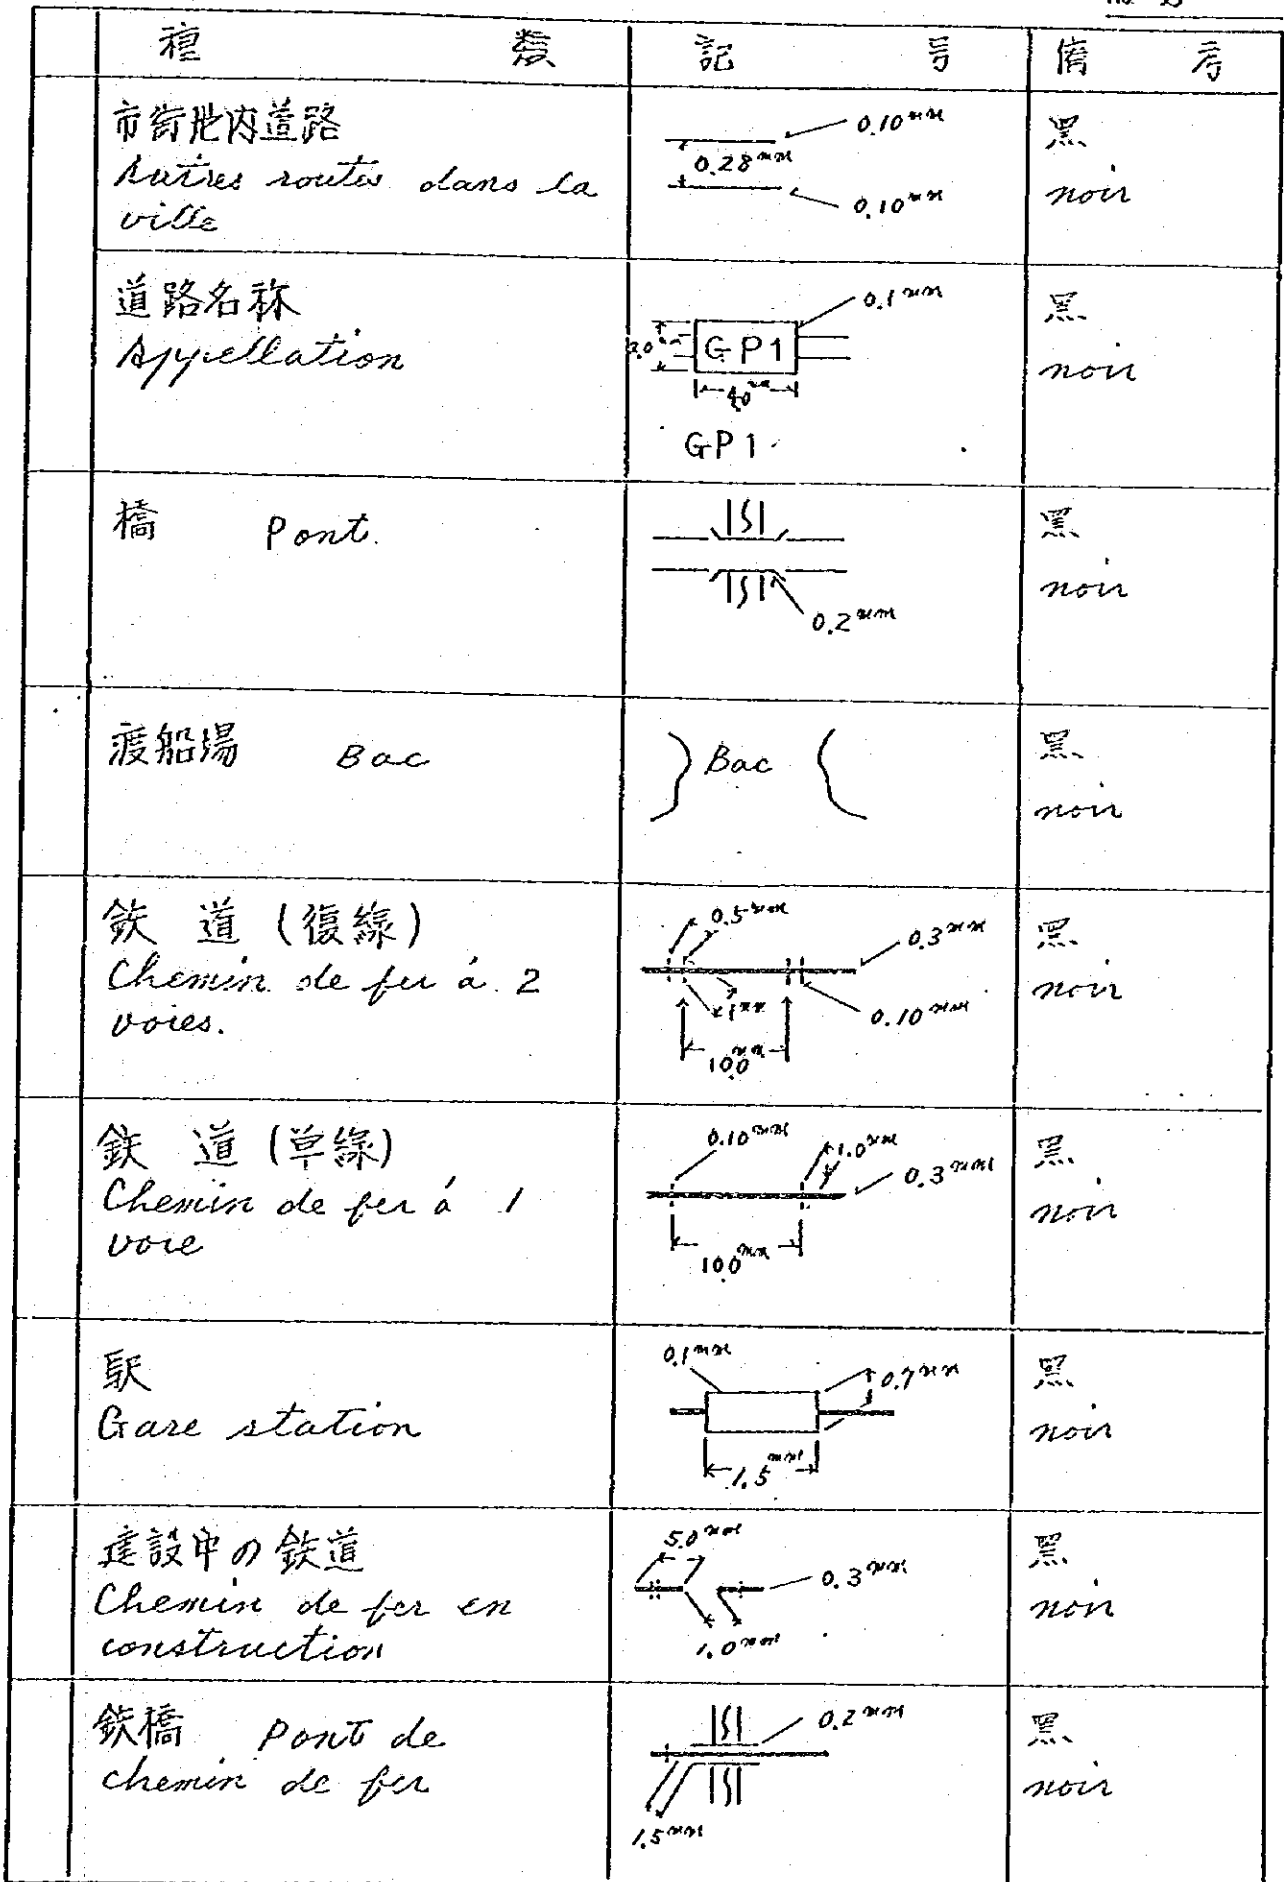 種 類 記 号 備 考
市街地内道路
Autres routes dans la
ville
0.10mm
0.28mm
0.10mm
黒
noir
道路名称
Appellation
0.1mm
GP1
4.0mm
GP1
黒
noir
橋 Pont.
0.2mm
黒
noir
渡船場 Bac
Bac
黒
noir
鉄 道 (復線)
Chemin de fer à 2
voies.
0.5mm
0.3mm
1mm
0.10mm
10.0mm
黒
noir
鉄 道 (単線)
Chemin de fer à 1
voie
0.10mm
1.0mm
0.3mm
10.0mm
黒
noir
駅
Gare station
0.1mm
0.7mm
1.5mm
黒
noir
建設中の鉄道
Chemin de fer en
construction
5.0mm
0.3mm
1.0mm
黒
noir
鉄橋 Pont de
chemin de fer
0.2mm
1.5mm
黒
noir